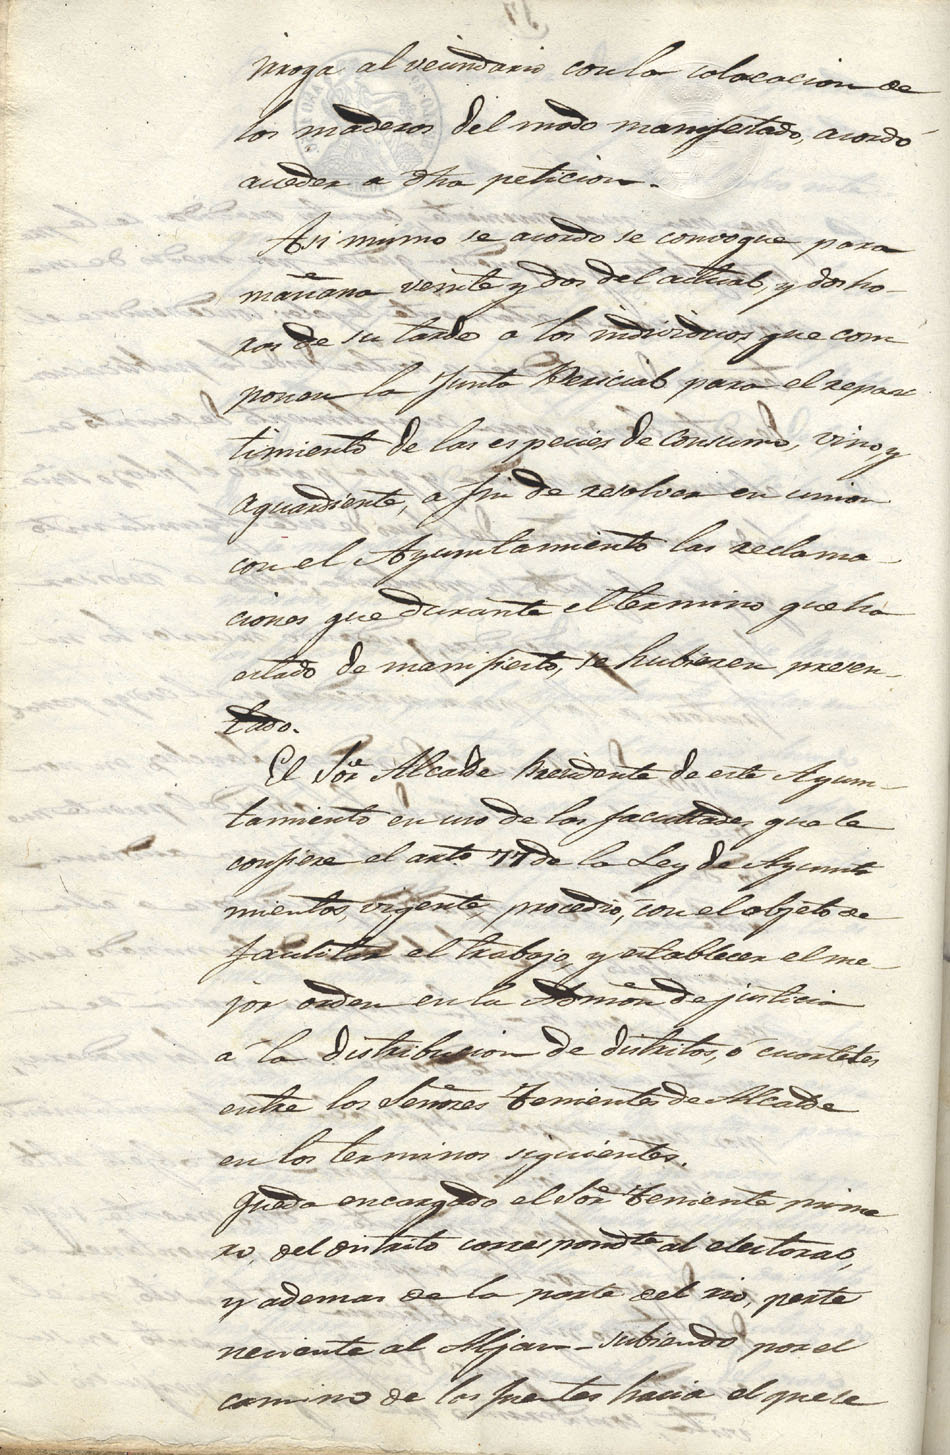 irroga al vecindario con la colocacion de
los maderos del modo manifestado, acordó
acceder a dha peticion.
Asi mismo se acordo se convoque para
mañana veinte y dos del actual, y dos ho-
ras de su tarde a los individuos que com
ponen la Junta Pericial para el repar
timiento de las especies de consumo, vino y
aguardiente, a fin de resolver en union
con el Ayuntamiento las reclama-
ciones que durante el termino que ha
estado de manifiesto, se hubieren presen-
tado.
El Sor Alcalde Presidente de este Ayun-
tamiento en uso de las facultades que le
confiere el arto 77 de la Ley de Ayunta
mientos, vigente, procedió, con el objeto de
facilitar el trabajo, y establecer el me-
jor orden en la Admon de justicia
á la distribucion de distritos, ó cuarteles
entre los Señores Tenientes de Alcalde
en los terminos siguientes.
Queda encargado el Sor Teniente prime
ro, del distrito correspondte al electoral,
y ademas de la parte del rio, perte
neciente al Aljau - subiendo por el
camino de las fuentes hacia el que se